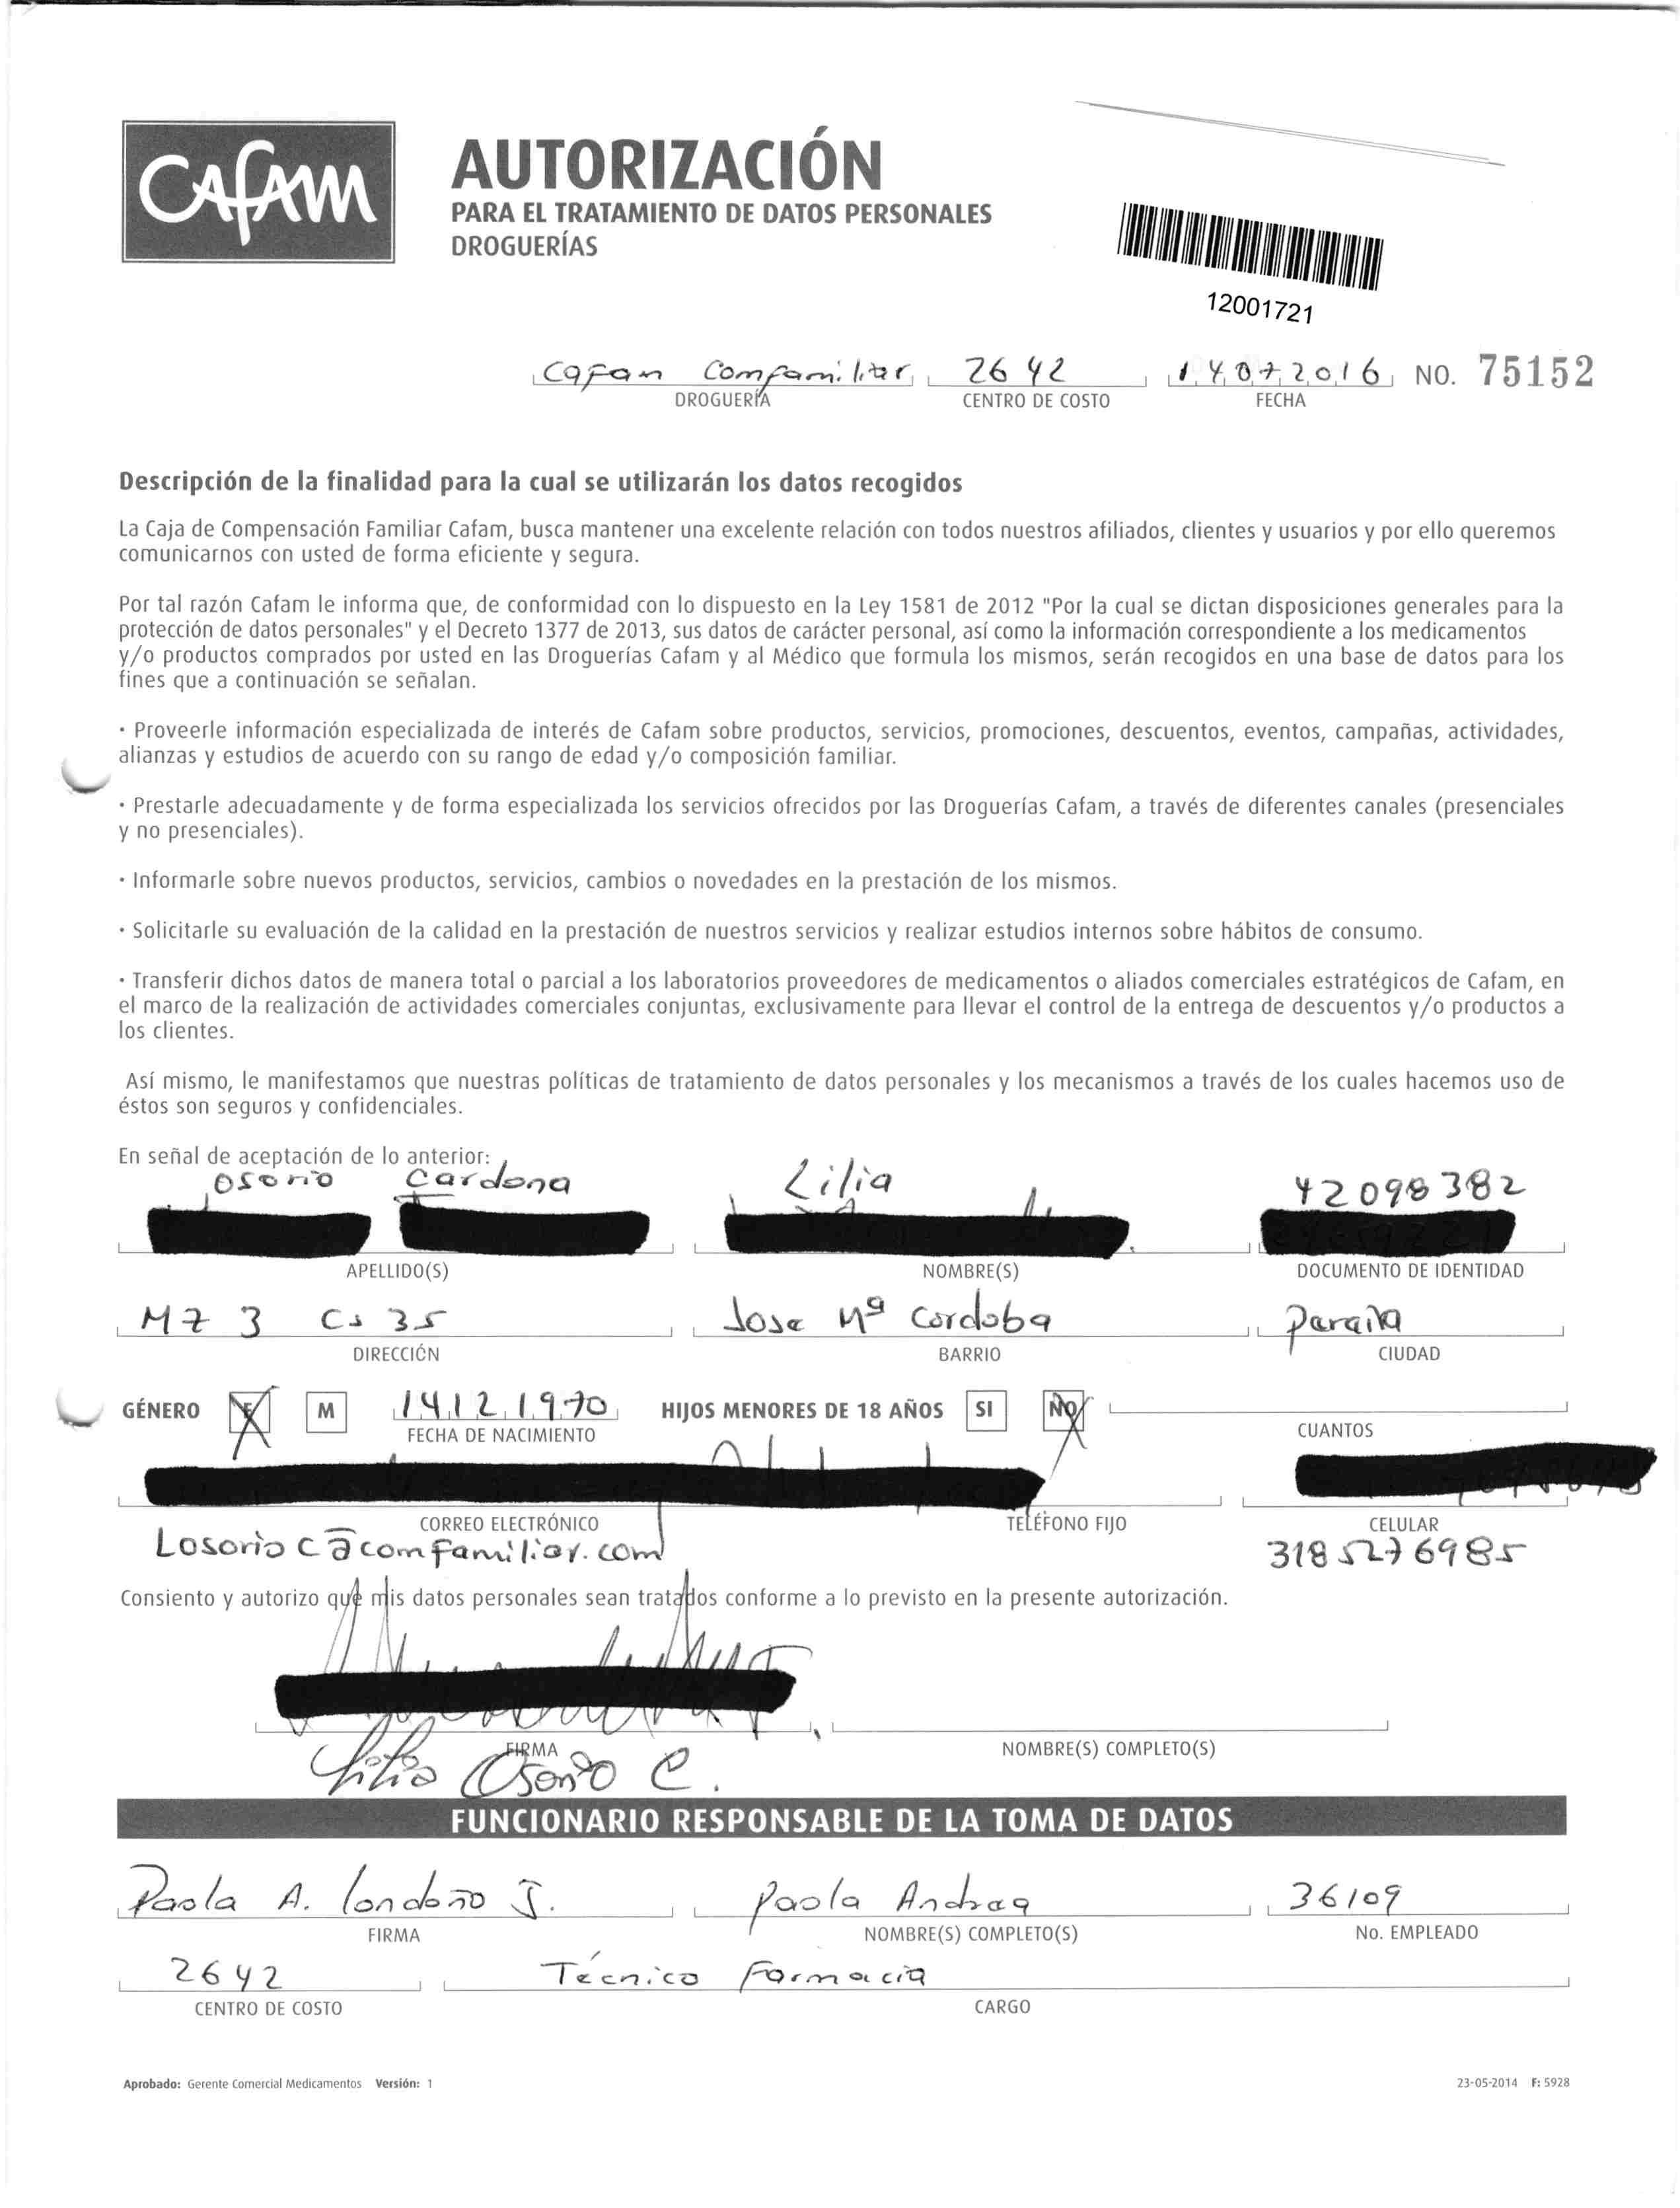 CAFAM
AUTORIZACIÓN
PARA EL TRATAMIENTO DE DATOS PERSONALES
DROGUERÍAS
12001721
Cafam Comfamiliar 2642 14072016 NO. 75152
DROGUERÍA CENTRO DE COSTO FECHA
Descripción de la finalidad para la cual se utilizarán los datos recogidos
La Caja de Compensación Familiar Cafam, busca mantener una excelente relación con todos nuestros afiliados, clientes y usuarios y por ello queremos
comunicarnos con usted de forma eficiente y segura.
Por tal razón Cafam le informa que, de conformidad con lo dispuesto en la Ley 1581 de 2012 "Por la cual se dictan disposiciones generales para la
protección de datos personales" y el Decreto 1377 de 2013, sus datos de carácter personal, así como la información correspondiente a los medicamentos
y/o productos comprados por usted en las Droguerías Cafam y al Médico que formula los mismos, serán recogidos en una base de datos para los
fines que a continuación se señalan.
· Proveerle información especializada de interés de Cafam sobre productos, servicios, promociones, descuentos, eventos, campañas, actividades,
alianzas y estudios de acuerdo con su rango de edad y/o composición familiar.
· Prestarle adecuadamente y de forma especializada los servicios ofrecidos por las Droguerías Cafam, a través de diferentes canales (presenciales
y no presenciales).
· Informarle sobre nuevos productos, servicios, cambios o novedades en la prestación de los mismos.
· Solicitarle su evaluación de la calidad en la prestación de nuestros servicios y realizar estudios internos sobre hábitos de consumo.
· Transferir dichos datos de manera total o parcial a los laboratorios proveedores de medicamentos o aliados comerciales estratégicos de Cafam, en
el marco de la realización de actividades comerciales conjuntas, exclusivamente para llevar el control de la entrega de descuentos y/o productos a
los clientes.
Así mismo, le manifestamos que nuestras políticas de tratamiento de datos personales y los mecanismos a través de los cuales hacemos uso de
éstos son seguros y confidenciales.
En señal de aceptación de lo anterior:
Osorio Cardona Lilia 42098382
APELLIDO(S) NOMBRE(S) DOCUMENTO DE IDENTIDAD
Mz 3 Cs 35 Jose Mª Cordoba Peraira
DIRECCIÓN BARRIO CIUDAD
GÉNERO F M 14121970 HIJOS MENORES DE 18 AÑOS SI NO
FECHA DE NACIMIENTO CUANTOS
CORREO ELECTRÓNICO TELÉFONO FIJO CELULAR
Losorio c@comfamiliar.com 3185276985
Consiento y autorizo que mis datos personales sean tratados conforme a lo previsto en la presente autorización.
FIRMA NOMBRE(S) COMPLETO(S)
Lilia Osorio C.
FUNCIONARIO RESPONSABLE DE LA TOMA DE DATOS
Paola A. Londoño J. Paola Andrea 36109
FIRMA NOMBRE(S) COMPLETO(S) No. EMPLEADO
2642 Técnico Farmacia
CENTRO DE COSTO CARGO
Aprobado: Gerente Comercial Medicamentos Versión: 1 23-05-2014 F: 5928